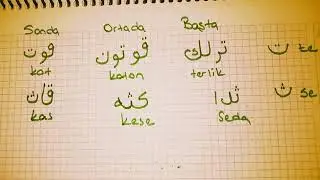 Sonda Ortada Başta
قوت قوتون ترلك ت te
kat koton terlik
قاث كثه ثدا ث se
kas kese Seda